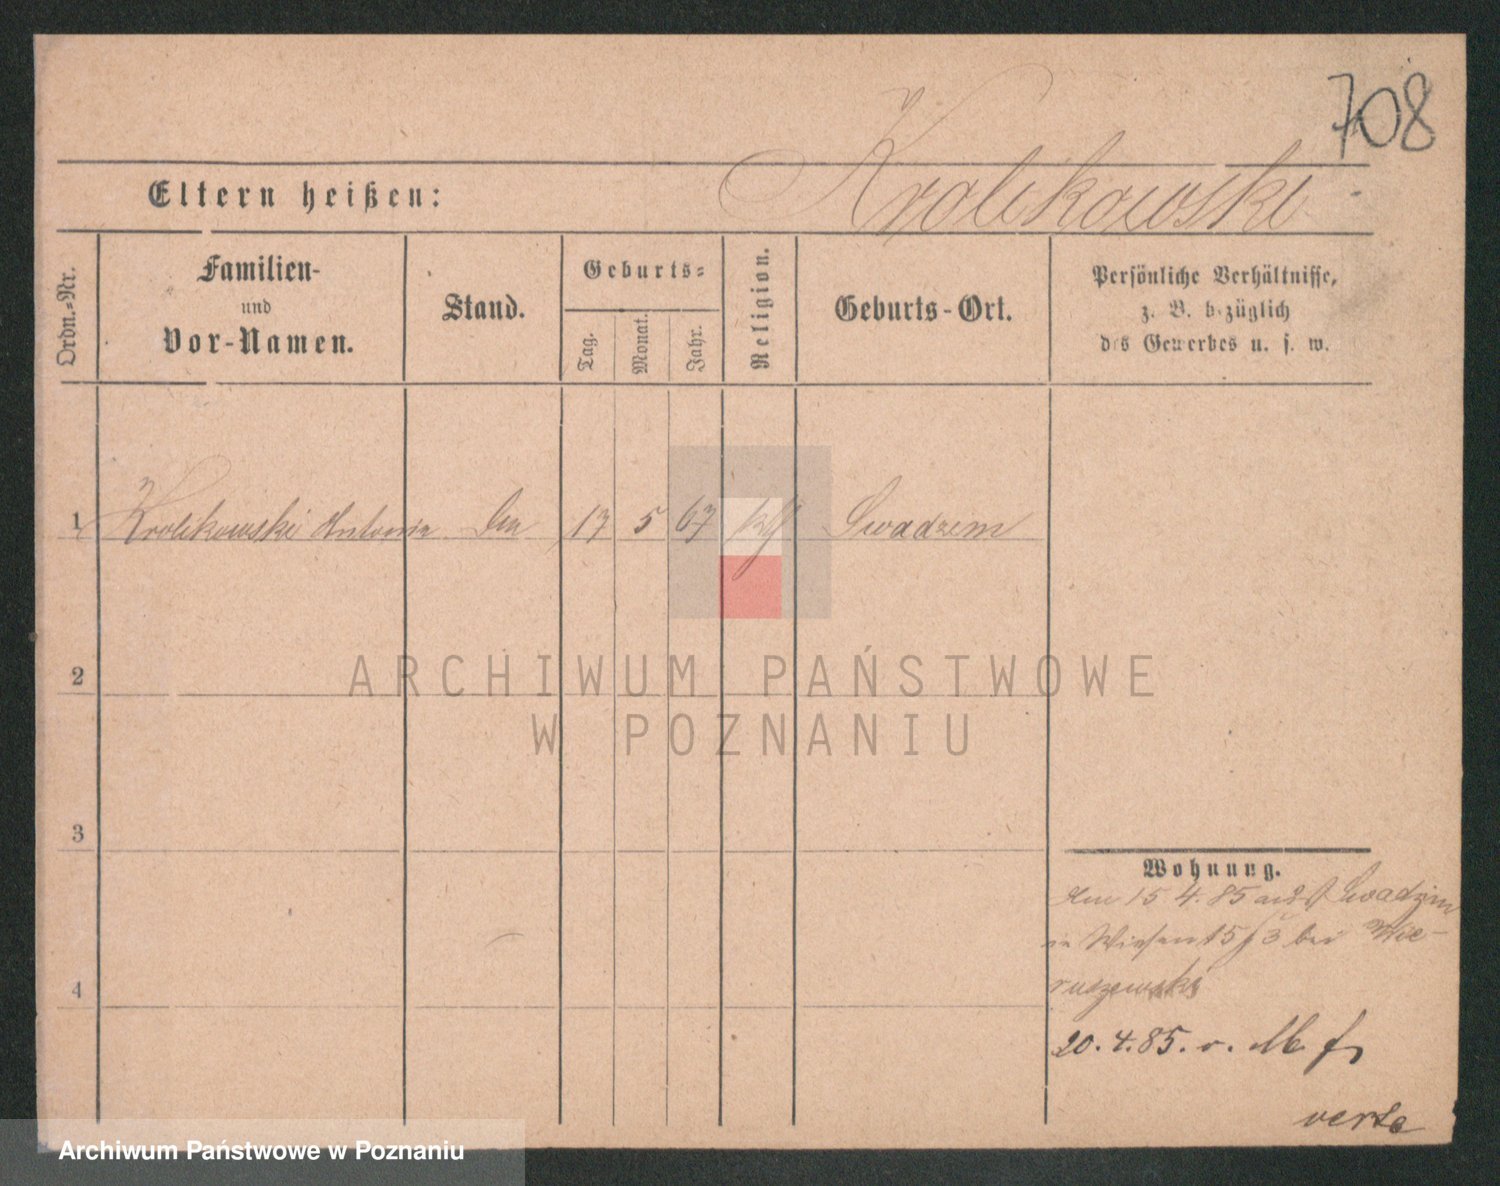 708
Krolikowski
Eltern heißen:
Ordn.-Nr.
Familien-
und
Vor-Namen.
Stand.
Geburts-
Tag.
Monat.
Jahr.
Religion.
Geburts-Ort.
Persönliche Verhältnisse,
z. B. bezüglich
des Gewerbes u. s. w.
1 Krolikowski Antonia 17 5 67 Swadzim
ARCHIWUM PAŃSTWOWE
W POZNANIU
2
3
4
Wohnung.
Am 15 4. 85 aus Swadzim
in Wiesenst 5/3 bei Wie-
ruszewski
20. 4. 85. v.
verte
Archiwum Państwowe w Poznaniu